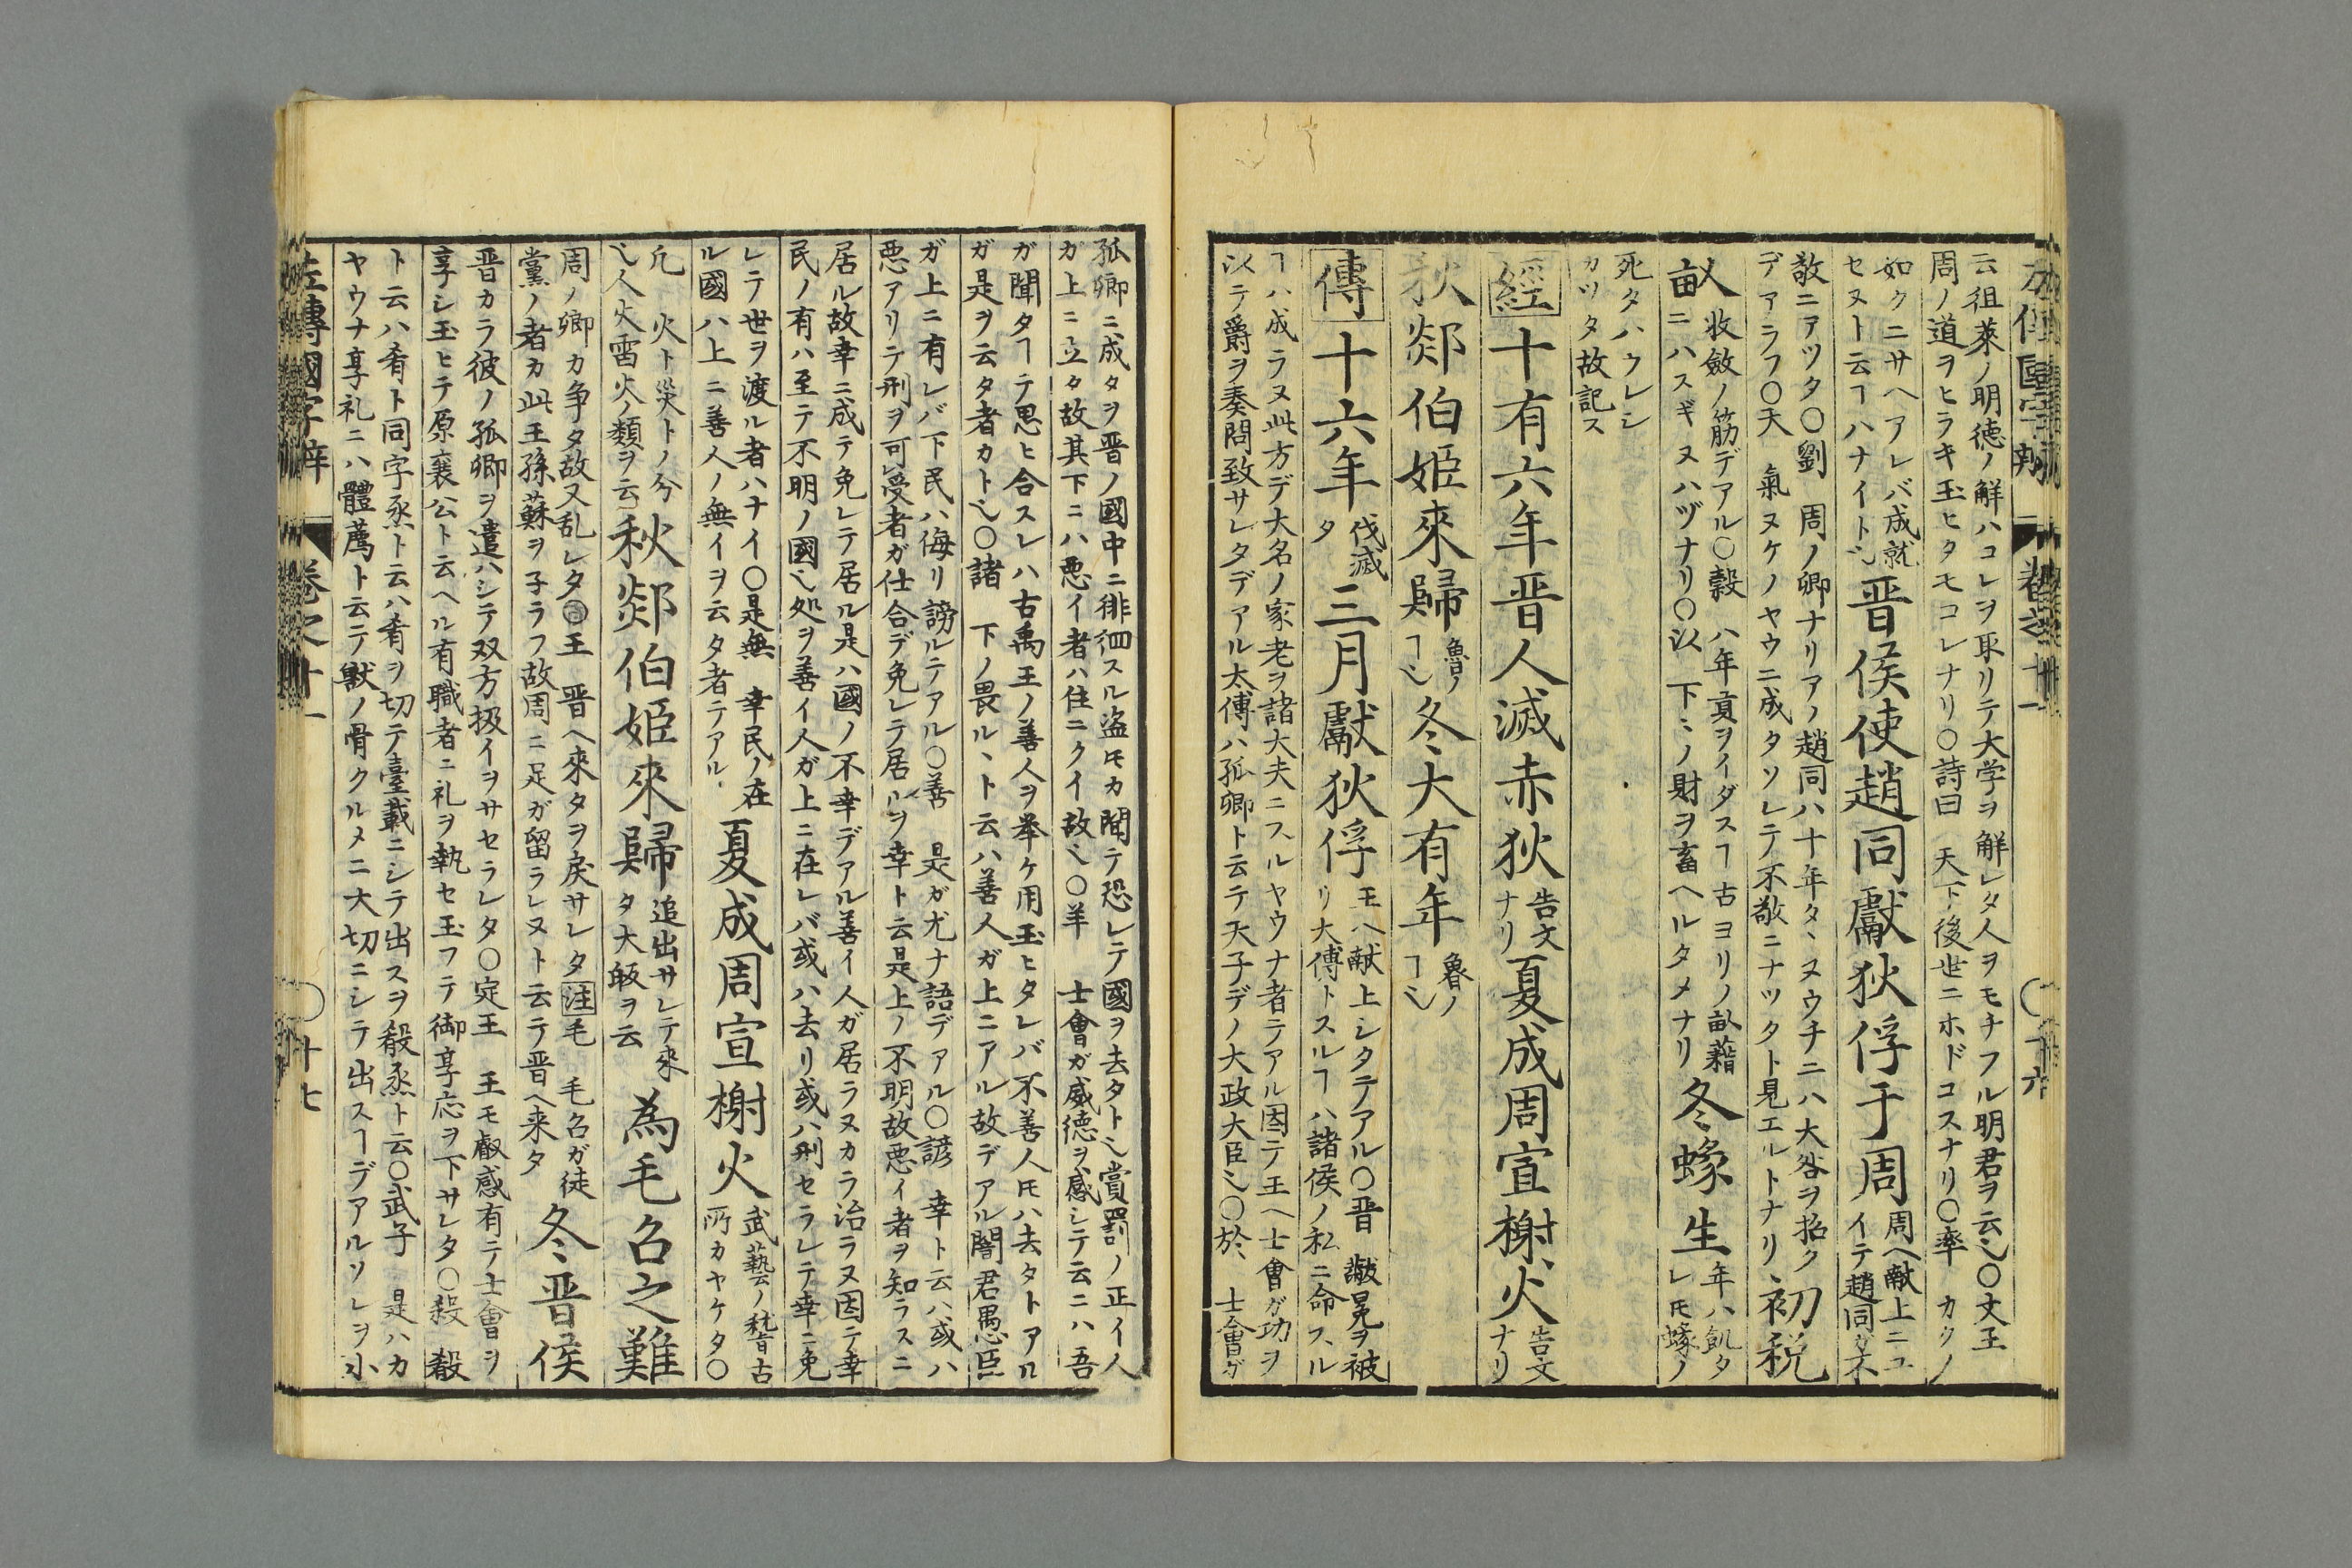 云徂萊ノ明徳ノ解ハコレヲ取リテ大学ヲ解レタ人ヲモチフル明君ヲ云〻〇文王
周ノ道ヲヒラキ玉ヒタモコレナリ〇詩曰 天下後世ニホドコスナリ〇率 カクノ
如クニサヘアレバ成就
セヌト云ヿハナイト〻
晋侯使趙同獻狄俘于周
周ヘ献上ニユ
イテ趙同ガ不
敬ニアツタ〇劉 周ノ卿ナリアノ趙同ハ十年タヽヌウチニハ大咎ヲ招ク
デアラフ〇天 氣ヌケノヤウニ成タソレテ不敬ニナツタト見エルトナリ
初税
畝
收斂ノ筋デアル〇穀 ハ年貢ヲイダスヿ古ヨリノ畝藉
ニハスギヌハヅナリ〇以 下ミノ財ヲ畜ヘルタメナリ
冬蝝生
年ハ飢タ
レ𪜈蝝ノ
死タハウレシ
カツタ故記ス
經十有六年晋人滅赤狄
告文
ナリ
夏成周宣榭火
告文
ナリ
秋郯伯姬來歸
魯ノ
ヿ〻
冬大有年
魯ノ
ヿ〻
傳十六年
伐滅
タ
三月獻狄俘
王ヘ献上シタテアル〇晋 黻冕ヲ被
リ大傅トスルヿハ諸侯ノ私ニ命スル
ヿハ成ラヌ此方デ大名ノ家老ヲ諸大夫ニスルヤウナ者テアル因テ王ヘ士會ガ功ヲ
以テ爵ヲ奏問致サレタデアル太傅ハ孤卿ト云テ天子デノ大政大臣〻〇於 士會ガ
孤卿ニ成タヲ晋ノ國中ニ徘徊スル盗𪜈カ聞テ恐レテ國ヲ去タト〻賞罰ノ正イ人
ガ上ニ立タ故其下ニハ悪イ者ハ住ニクイ故〻〇羊 士會ガ威徳ヲ感シテ云ニハ吾
ガ聞タヿテ思ヒ合スレハ古禹王ノ善人ヲ举ケ用玉ヒタレバ不善人𪜈ハ去タトアル
ガ是ヲ云タ者カト〻〇諸 下ノ畏ルヽト云ハ善人ガ上ニアル故デアル闇君愚臣
ガ上ニ有レバ下民ハ侮リ謗ルテアル〇善 是ガ尤ナ語デアル〇諺 幸ト云ハ或ハ
悪アリテ刑ヲ可受者ガ仕合デ免レテ居ルヲ幸ト云是上ノ不明故悪イ者ヲ知ラスニ
居ル故幸ニ成テ免レテ居ル是ハ國ノ不幸デアル善イ人ガ居ラヌカラ治ラヌ因テ幸
民ノ有ハ至テ不明ノ國〻処ヲ善イ人ガ上ニ在レバ或ハ去リ或ハ刑セラレテ幸ニ免
レテ世ヲ渡ル者ハナイ〇是無 幸民ノ在
ル國ハ上ニ善人ノ無イヲ云タ者テアル
夏成周宣榭火
武藝ノ稽古
所カヤケタ〇
凢 火ト災トノ分
〻人火雷火ノ類ヲ云
秋郯伯姬來歸
追出サレテ來
タ大皈ヲ云
為毛召之難
周ノ卿カ争タ故又乱レタ〇王 晋ヘ來タヲ戻サレタ注毛 毛召ガ徒
黨ノ者カ此王孫蘇ヲ子ラフ故周ニ足ガ留ラレヌト云テ晋ヘ来タ
冬晋侯
晋カラ彼ノ孤卿ヲ遣ハシテ双方扱イヲサセラレタ〇定王 王モ叡感有テ士會ヲ
享シ玉ヒテ原襄公ト云ヘル有職者ニ礼ヲ執セ玉フテ御享応ヲ下サレタ〇殽 殽
ト云ハ肴ト同字烝ト云ハ肴ヲ切テ臺載ニシテ出スヲ殽烝ト云〇武子 是ハカ
ヤウナ享礼ニハ體薦ト云テ獣ノ骨クルメニ大切ニシテ出スヿデアルソレヲ小
左傳國字辯 卷之十一 十七